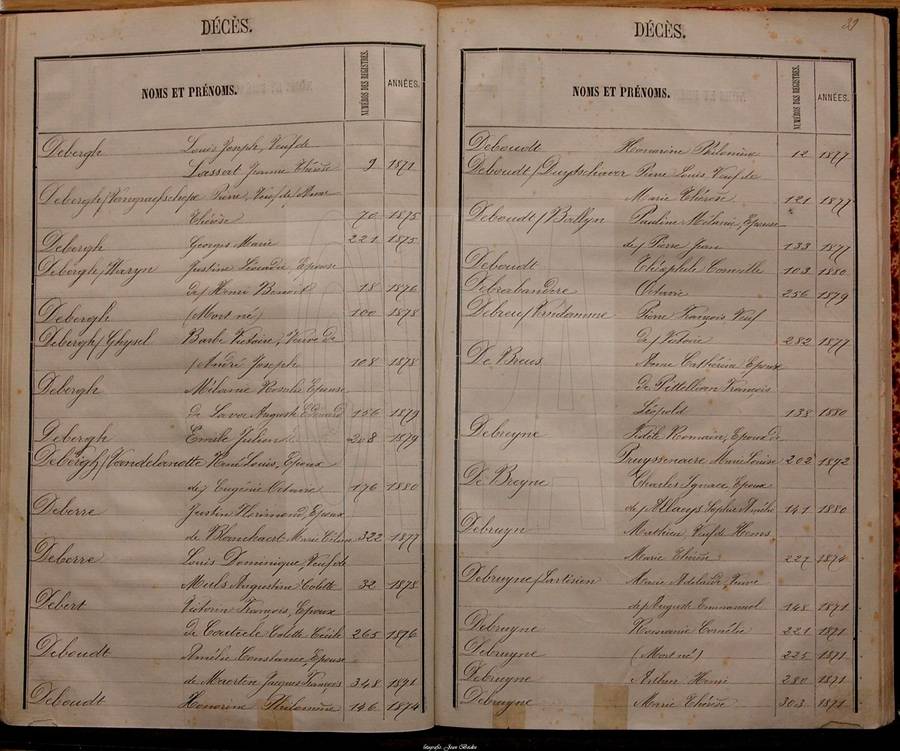 DÉCÈS.
NOMS ET PRÉNOMS. NUMÉROS DES REGISTRES. ANNÉES.
Debergh Louis Joseph, Veuf de
Lassat Jeanne Thérèse 9 1871
Debergh/Vangraefschepe Pierre, Veuf de Marie
Thérèse 70 1875
Debergh Georges Marie 221 1875
Debergh/Waryn Justine Léocadie, Epouse
de/ Henri Benoit 18 1876
Debergh (Mort né) 100 1878
Debergh/Ghysel Barbe Victoire, Veuve de
/André Joseph 108 1878
Debergh Mélanie Rosalie Epouse
de Auguste Edouard 156 1879
Debergh Emile Julien 208 1879
Debergh/Vandelanotte René Louis, Epoux
de/ Eugénie Octavie 176 1880
Deberre Justin Florimond, Epoux
de Blanckaert Marie 322 1877
Deberre Louis Dominique, Veuf de
Meuls Augustine Colette 32 1878
Debert Victorin François, Epoux
de Colette Cécile 265 1876
Deboudt Amélie Constance, Epouse
de Maerten Jacques François 348 1871
Deboudt Honorine Philomène 146 1874
DÉCÈS.
NOMS ET PRÉNOMS. NUMÉROS DES REGISTRES. ANNÉES.
Deboudt Honorine Philomène 12 1877
Deboudt/Duytschaver Pierre Louis Veuf de
Marie Thérèse 121 1877
Deboudt/Ballyn Pauline Mélanie, Epouse
de/ Pierre Jean 133 1877
Deboudt Théophile Camille 103 1880
Debrabandere Octavie 256 1879
Debreu/Vandamme Pierre François Veuf
de/ Victoire 282 1877
De Breus Anne Cathérine Epoux
de François
Léopold 138 1880
Debreyne Fidèle Romain, Epoux de
Pruyssenaere Marie Louise 202 1872
De Breyne Charles Ignace Epoux
de/ Allaeys Sophie Amélie 141 1880
Debruyn Mathieu Veuf de
Marie Thérèse 227 1874
Debruyne/Lartisien Marie Adelaïde, Veuve
de/ Auguste Emmanuel 148 1871
Debruyne Romanie Cornélie 221 1871
Debruyne (Mort né) 225 1871
Debruyne Arthur Henri 280 1871
Debruyne Marie Thérèse 303 1871